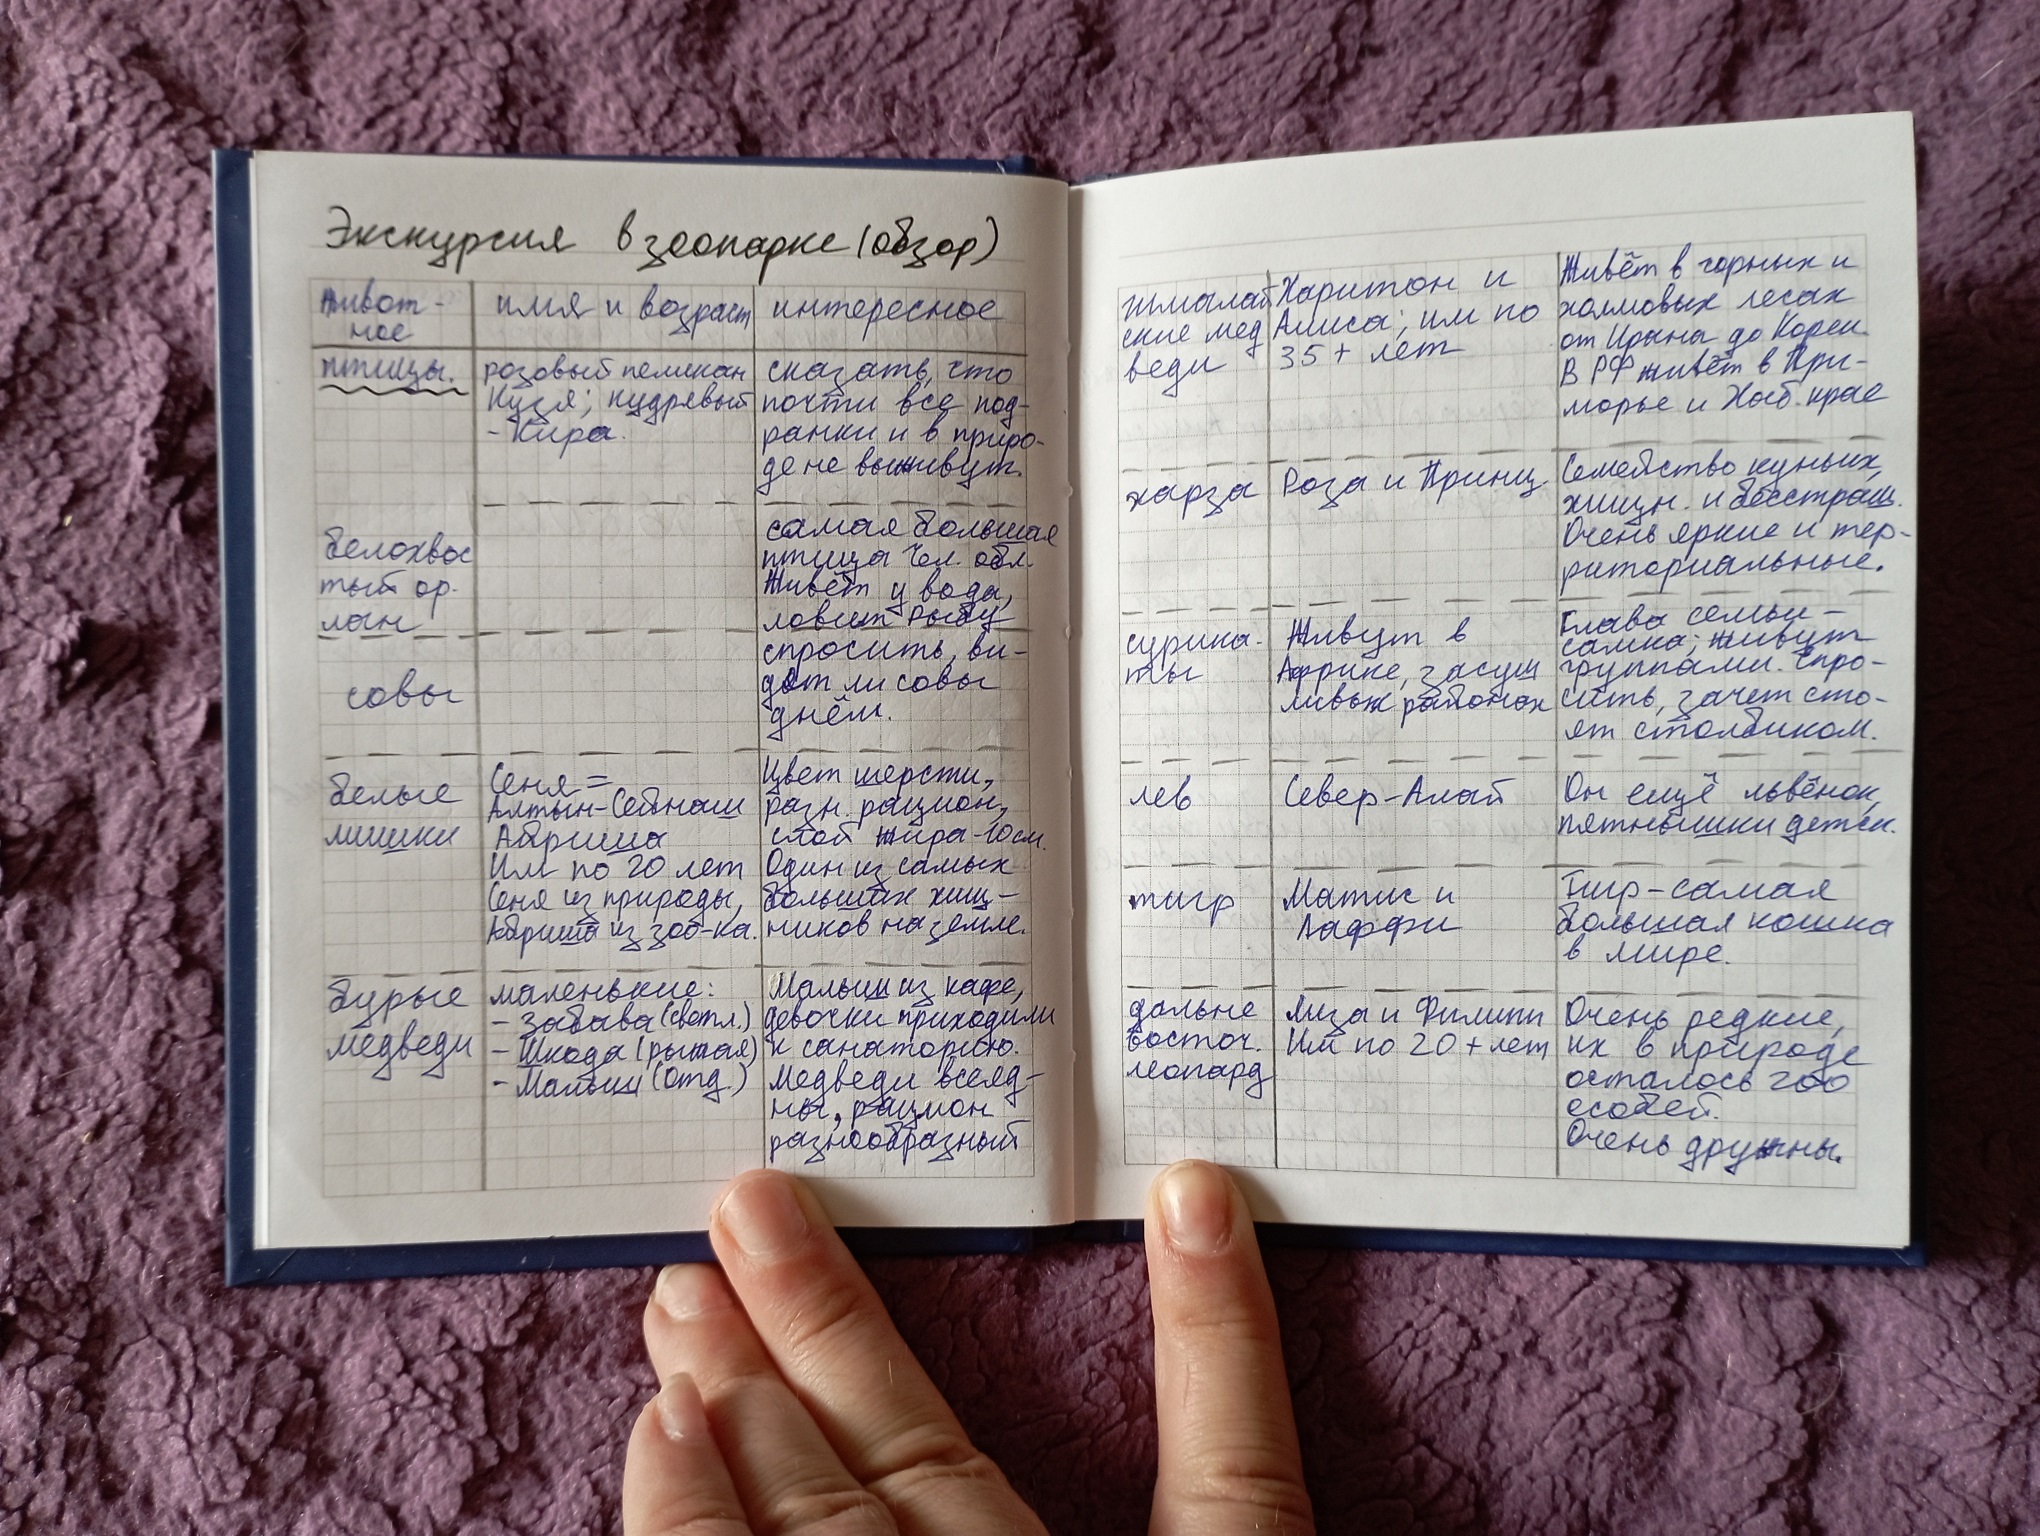 Экскурсия в зоопарке (обзор)
Живот-
ное
имя и возраст
интересное
птицы.
розовый пеликан
Кузя; кудрявый
- Кира.
сказать, что
почти все под-
ранки и в приро-
де не выживут.
белохвос
тый ор-
лан
самая большая
птица Чел. обл.
Живёт у воды,
ловит рыбу
совы
спросить, ви-
дят ли совы
днём.
белые
мишки
Сеня =
Алтын-Сейнаш
Айриша
Им по 20 лет
Сеня из природы,
Айриша из зоо-ка.
Цвет шерсти,
разн. рацион,
слой жира-10см.
Один из самых
больших хищ-
ников на земле.
бурые
медведи
маленькие:
- Забава (светл.)
- Шкода (рыжая)
- Малыш (отд.)
Малыш из кафе,
девочки приходили
к санаторию.
Медведи всеяд-
ны, рацион
разнообразный
гималай
ские мед
веди
Харитон и
Алиса; им по
35+ лет
Живёт в горных и
холмовых лесах
от Ирана до Кореи.
В РФ живёт в При-
морье и Хаб. крае
харза
Роза и Принц.
Семейство куньих,
хищн. и бесстраш.
Очень яркие и тер-
риториальные.
сурика-
ты
Живут в
Африке, засуш
ливых районах
Глава семьи -
самка; живут
группами. Спро-
сить, зачем сто-
ят столбиком.
лев
Север-Алай
Он ещё львёнок,
пятнышки детск.
тигр
Матис и
Лаффи
Тигр-самая
большая кошка
в мире.
дальне
восточ.
леопард
Лиза и Филипп
Им по 20+ лет
Очень редкие,
их в природе
осталось 200
особей.
Очень дружны.